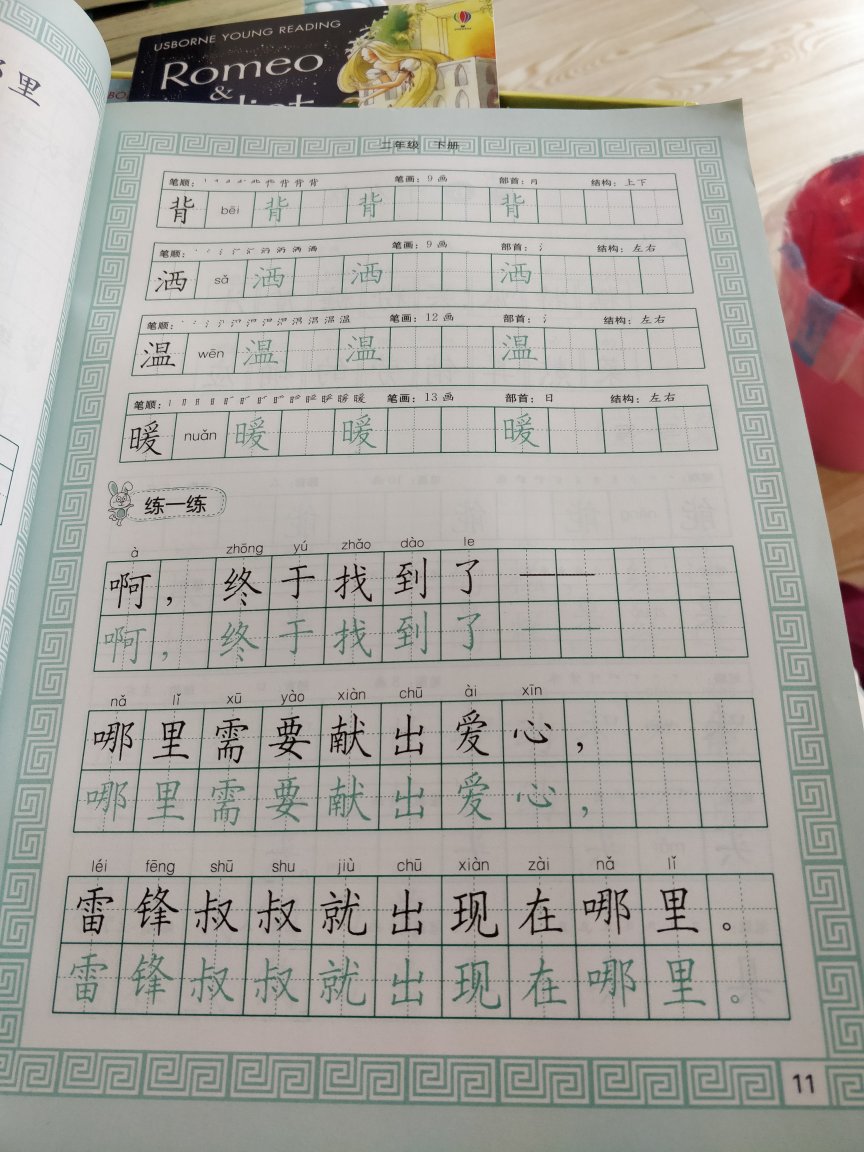 USBORNE YOUNG READING
Romeo
&
那里
二年级 下册
笔顺: 笔画: 9 画 部首: 月 结构: 上下
背 bēi 背 背 背
笔顺: 笔画: 9 画 部首: 氵 结构: 左右
洒 sǎ 洒 洒 洒
笔顺: 笔画: 12 画 部首: 氵 结构: 左右
温 wēn 温 温 温
笔顺: 笔画: 13 画 部首: 日 结构: 左右
暖 nuǎn 暖 暖 暖
练一练
à zhōng yú zhǎo dào le
啊，终于找到了——
啊，终于找到了——
nǎ lǐ xū yào xiàn chū ài xīn
哪里需要献出爱心，
哪里需要献出爱心，
léi fēng shū shu jiù chū xiàn zài nǎ lǐ
雷锋叔叔就出现在哪里。
雷锋叔叔就出现在哪里。
11